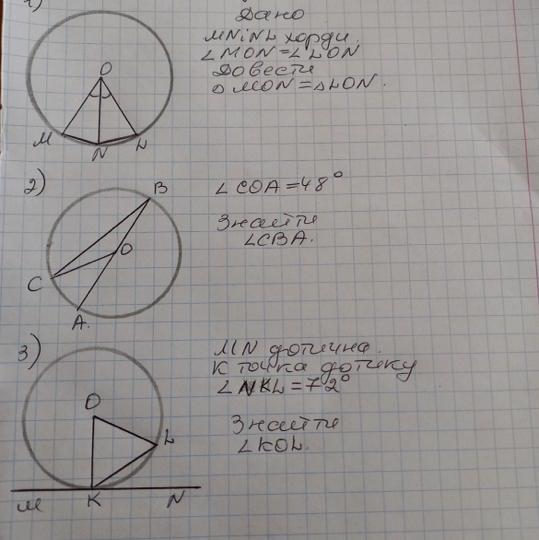 1)
Дано
MN i NL хорди.
∠MON=∠LON
Довести
△MON=△LON.
O
M
N
L
2)
B
∠COA=48°
Знайти
∠CBA.
O
C
A.
3)
MN дотична.
К точка дотику
∠NKL=72°
O
Знайти
∠KOL.
L
M
K
N